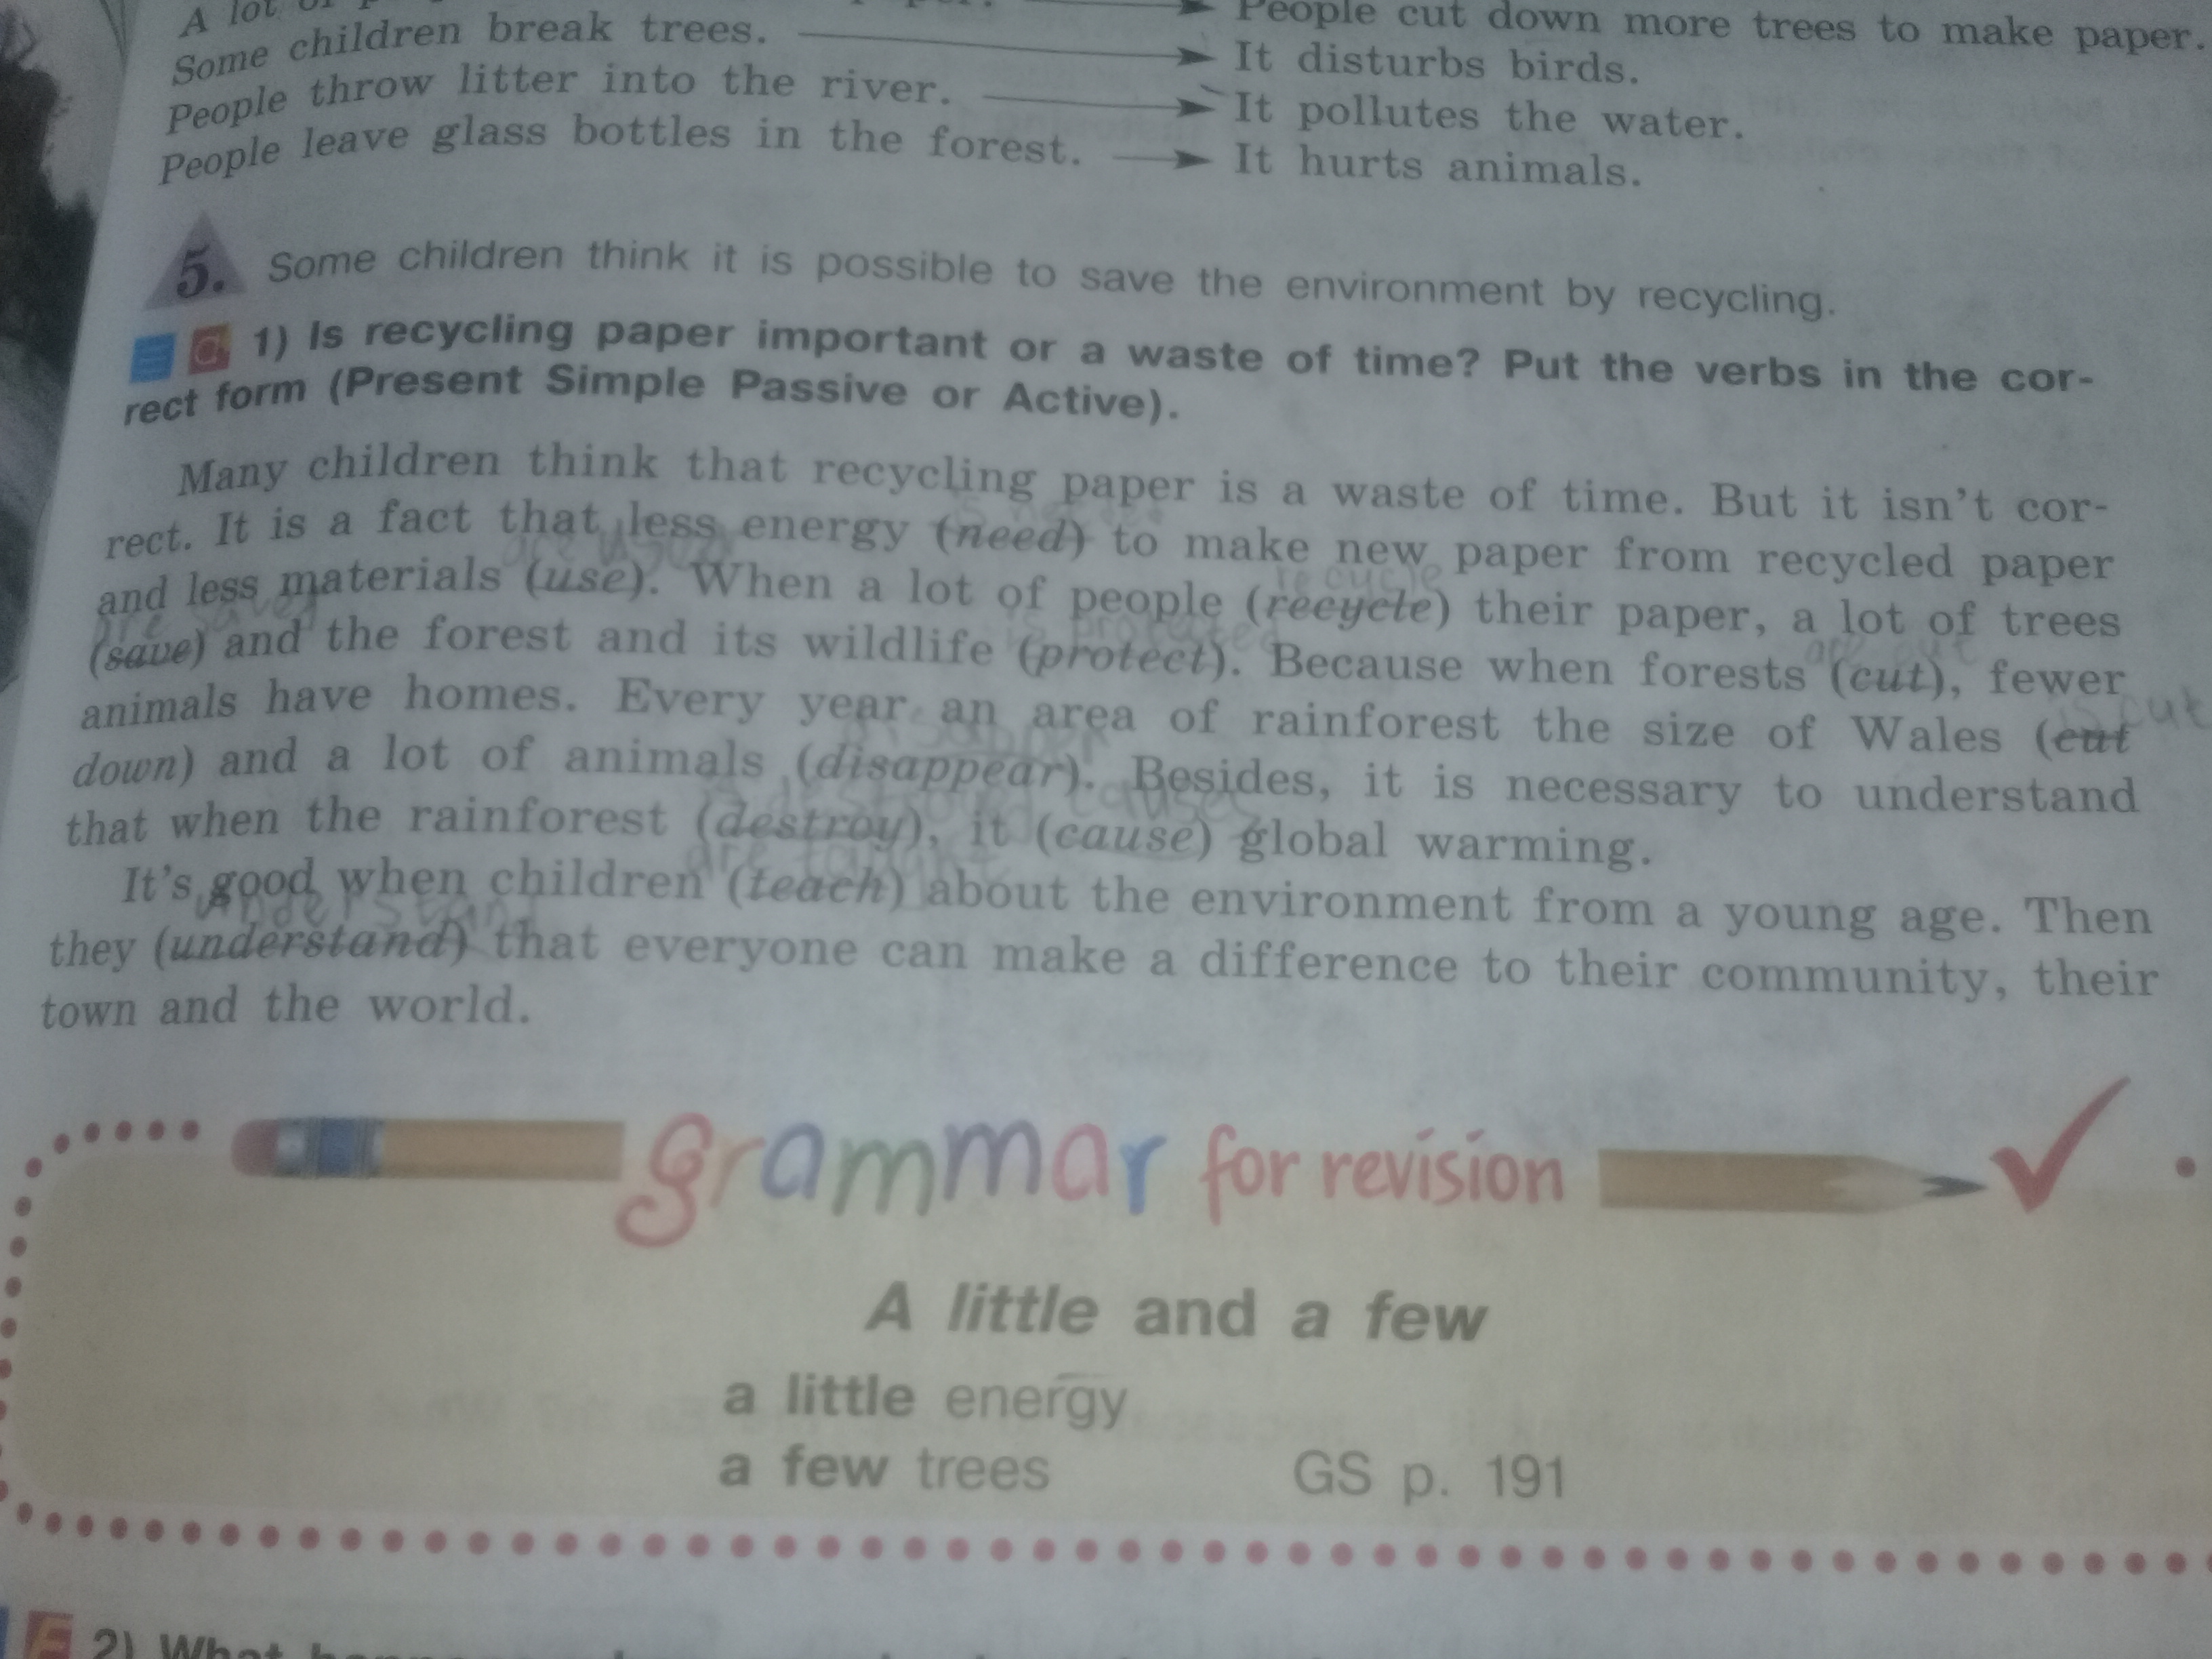 A lot of
People cut down more trees to make paper.
Some children break trees.
It disturbs birds.
People throw litter into the river.
It pollutes the water.
People leave glass bottles in the forest.
It hurts animals.
5. Some children think it is possible to save the environment by recycling.
1) Is recycling paper important or a waste of time? Put the verbs in the cor-
rect form (Present Simple Passive or Active).
Many children think that recycling paper is a waste of time. But it isn't cor-
rect. It is a fact that less energy (need) to make new paper from recycled paper
are used
recycle
and less materials (use). When a lot of people (recycle) their paper, a lot of trees
are saved
is protected
are cut
(save) and the forest and its wildlife (protect). Because when forests (cut), fewer
is cut
animals have homes. Every year an area of rainforest the size of Wales (cut
disappear
down) and a lot of animals (disappear). Besides, it is necessary to understand
causes
that when the rainforest (destroy), it (cause) global warming.
are taught
It's good when children (teach) about the environment from a young age. Then
understand
they (understand) that everyone can make a difference to their community, their
town and the world.
grammar for revision
A little and a few
a little energy
a few trees
GS p. 191
2) What